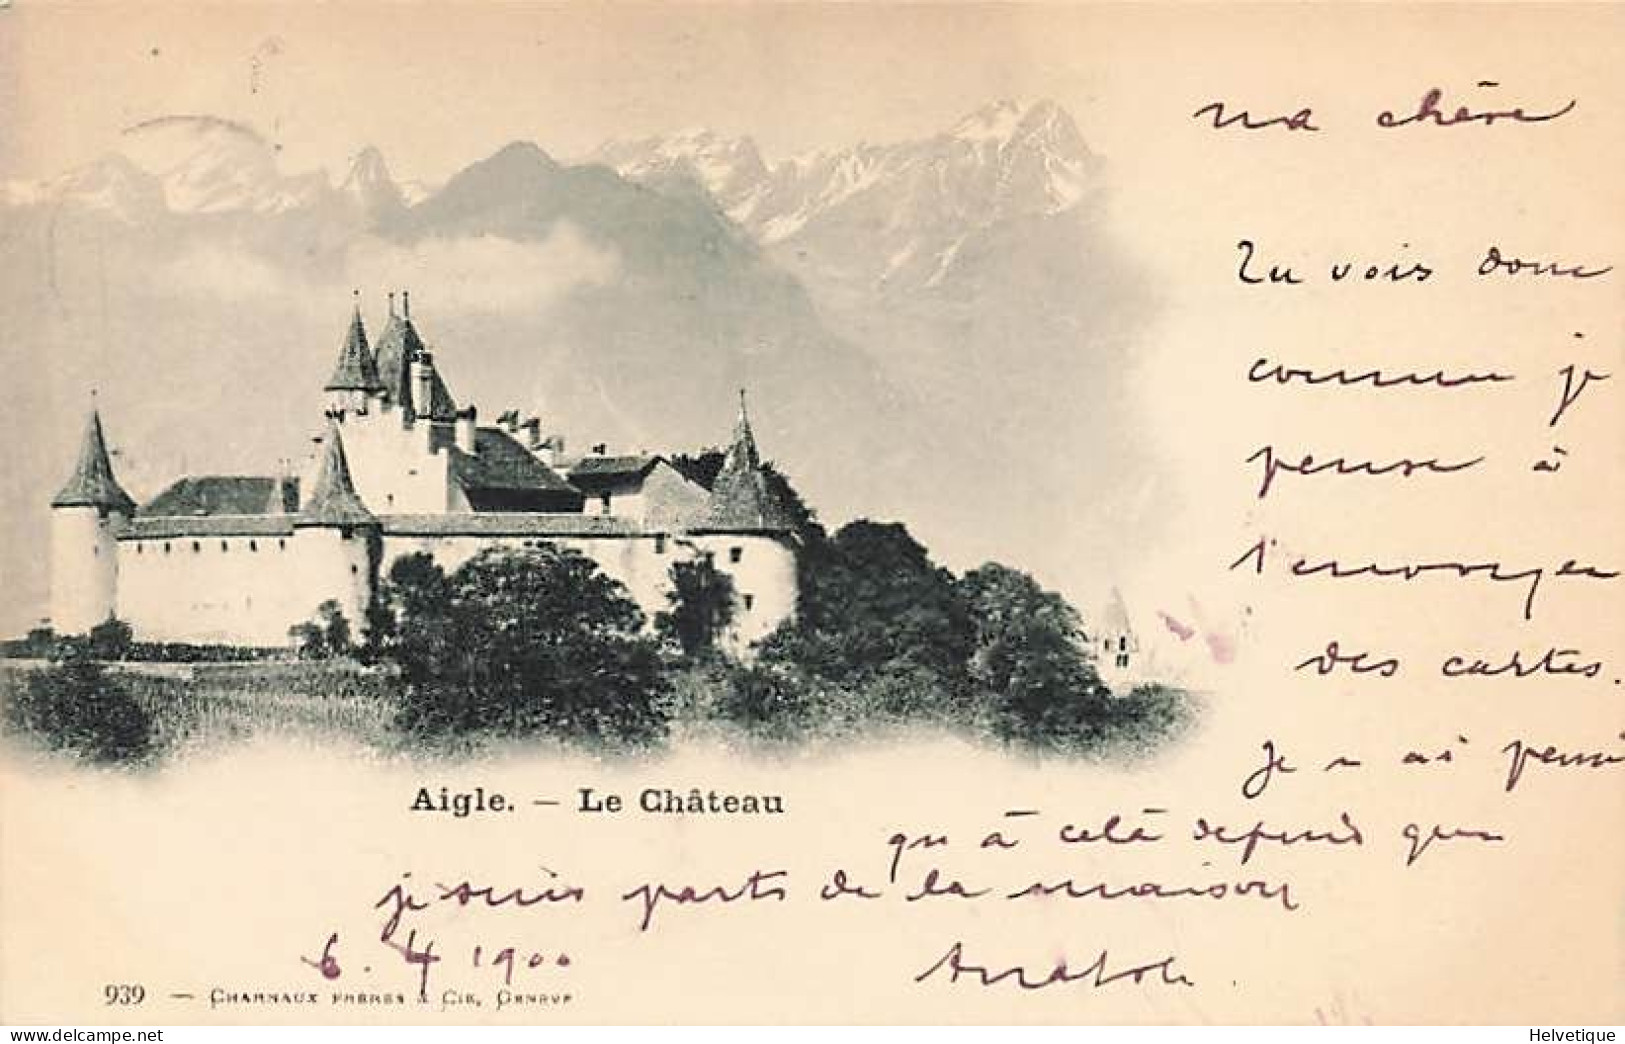 ma chère
Tu vois donc
comme je
pense à
t'envoyer
des cartes.
Je n ai pensé
qu à celà depuis que
je suis parts de la maison
6. 4 1900
Anatole.
Aigle. — Le Château
939 — CHARNAUX FRÈRES & CIE, GENÈVE
Helvetique